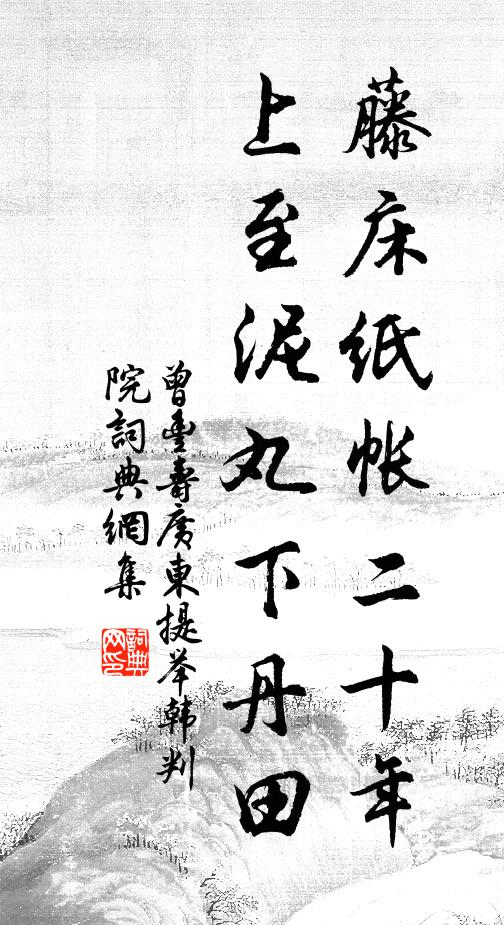 藤床纸帐二十年
上至泥丸下丹田
曾丰寿广东提举韩判
院词典网集
詞典网印